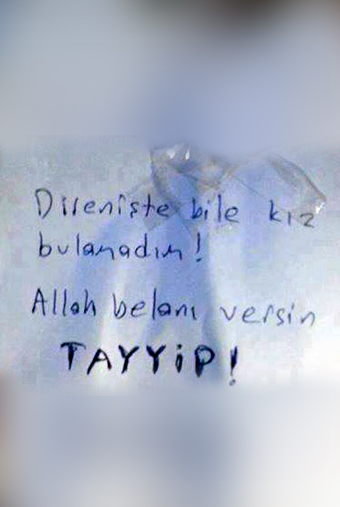 Direnişte bile kız
bulamadım!
Allah belanı versin
TAYYİP!